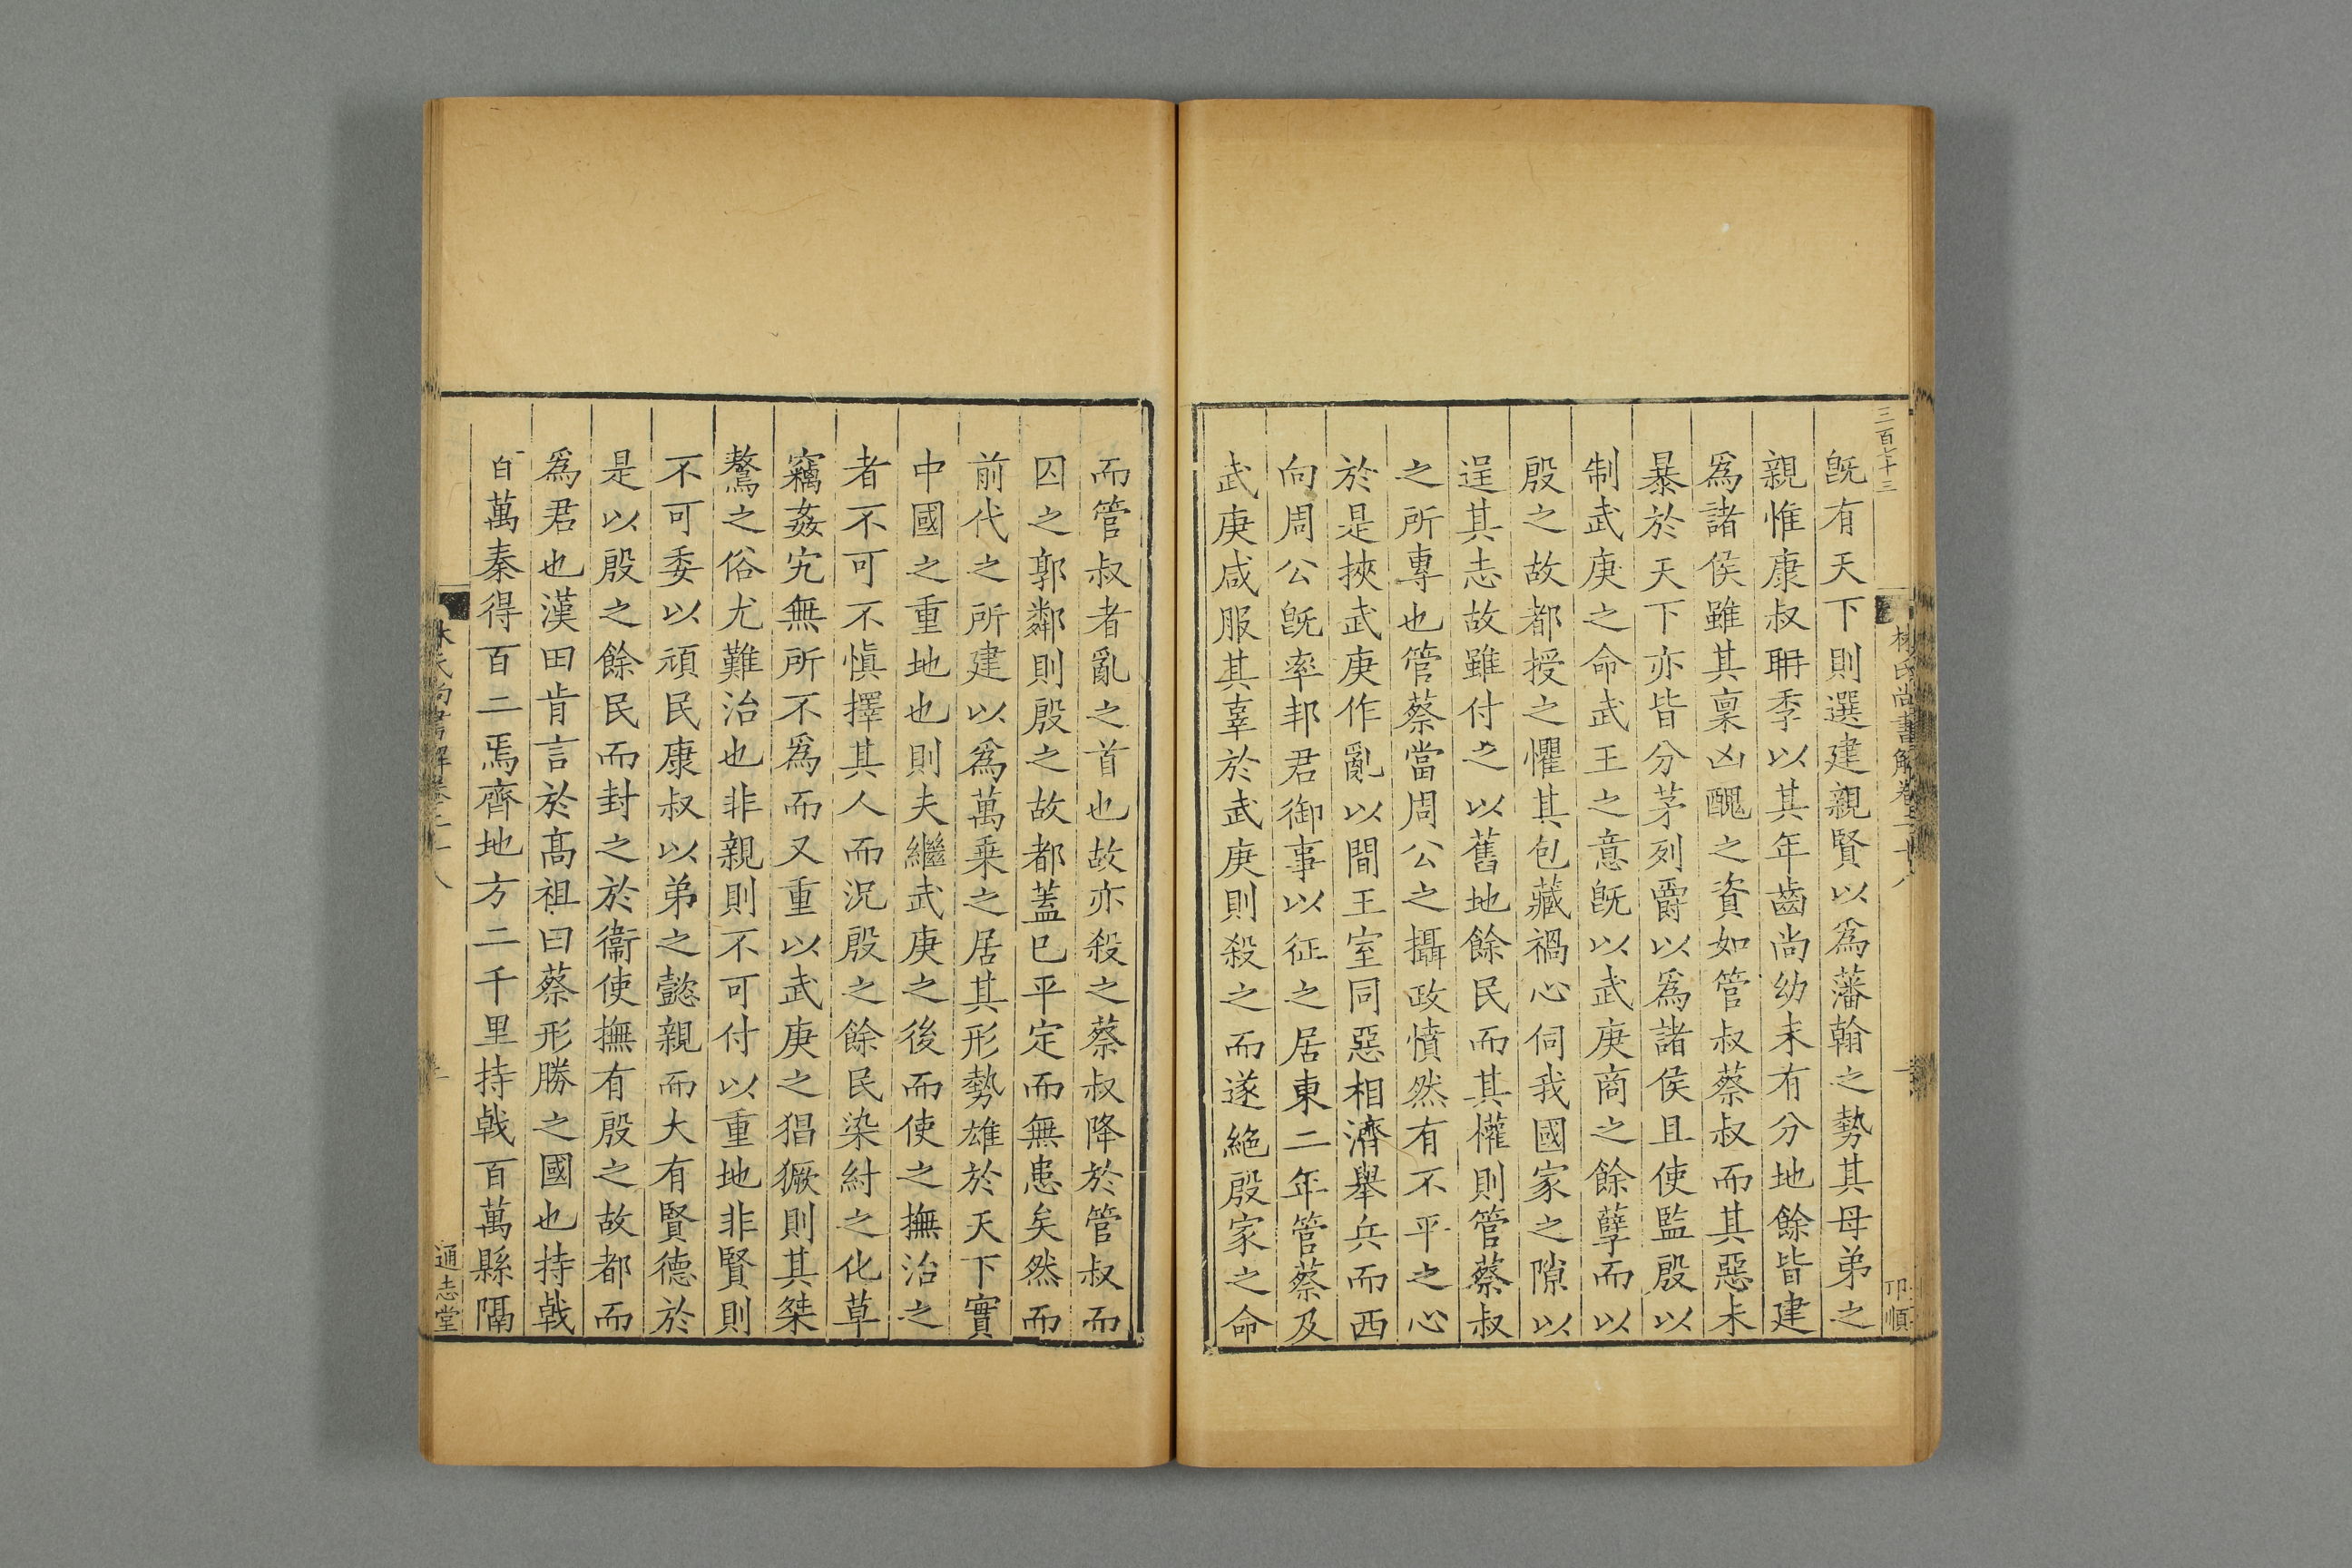 三百七十三
林氏尚書解卷二十八
一
卭順
旣有天下則選建親賢以爲藩翰之勢其母弟之
親惟康叔耼季以其年齒尚幼未有分地餘皆建
爲諸侯雖其稟凶醜之資如管叔蔡叔而其惡未
暴於天下亦皆分茅列爵以爲諸侯且使監殷以
制武庚之命武王之意旣以武庚商之餘孽而以
殷之故都授之懼其包藏禍心伺我國家之隙以
逞其志故雖付之以舊地餘民而其權則管蔡叔
之所專也管蔡當周公之攝政憤然有不平之心
於是挾武庚作亂以間王室同惡相濟舉兵而西
向周公旣率邦君御事以征之居東二年管蔡及
武庚咸服其辜於武庚則殺之而遂絶殷家之命
而管叔者亂之首也故亦殺之蔡叔降於管叔而
囚之郭鄰則殷之故都蓋已平定而無患矣然而
前代之所建以爲萬乗之居其形勢雄於天下實
中國之重地也則夫繼武庚之後而使之撫治之
者不可不愼擇其人而況殷之餘民染紂之化草
竊姦宄無所不爲而又重以武庚之猖獗則其桀
驁之俗尤難治也非親則不可付以重地非賢則
不可委以頑民康叔以弟之懿親而大有賢德於
是以殷之餘民而封之於衞使撫有殷之故都而
爲君也漢田肯言於髙祖曰蔡形勝之國也持戟
百萬秦得百二焉齊地方二千里持戟百萬縣隔
林氏尚書解卷二十八
通志堂